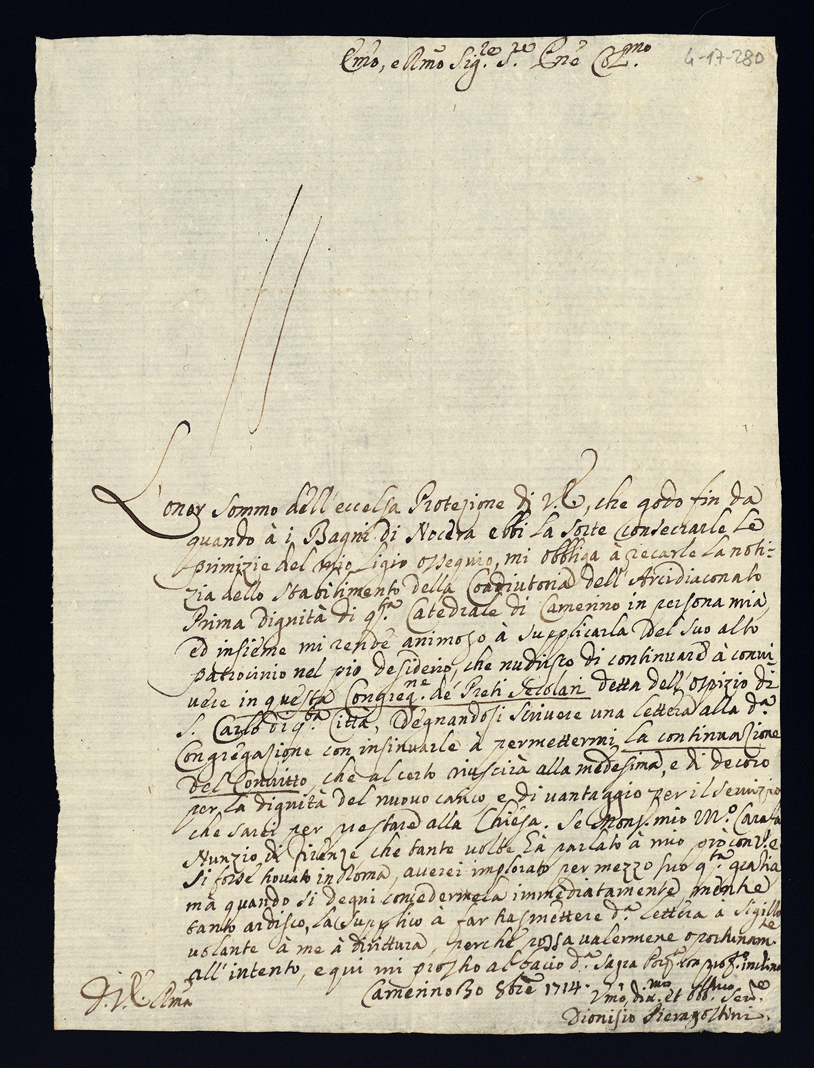 Emo, e Rmo Sig.re S.re Pne Col.mo
4-17-280
L'onor sommo dell'eccelsa Protezione di V.E., che godo fin da
quando à i Bagni di Nocera ebbi la sorte consecrarle le
primizie del mio ligio ossequio, mi obbliga à recarle la noti-
zia dello stabilimento della Coadiutoria dell'Arcidiaconato
Prima dignità di q.ta Catedrale di Camerino in persona mia,
ed insieme mi rende animoso à supplicarla del suo alto
patrocinio nel pio desiderio, che nudrisco di continuare à convi-
vere in questa Congreg.ne de' Preti Secolari detta dell'Ospizio di
S. Carlo di q.ta Città, degnandosi scrivere una lettera alla d.a
Congregazione con insinuarle à permettermi la continuazione
del Convitto, che al certo riuscirà alla medesima, e di decoro
per la dignità del nuovo carico e di vantaggio per il servizio
che sarò per prestare alla Chiesa. Se Mons. mio Caraffa
Nunzio di Firenze che tante volte hà parlato à mio prò con V.E.
si fosse trovato in Roma, averei implorato per mezzo suo q.ta grazia
mà quando si degni concedermela immediatamente mentre
tanto ardisco, la supplico à far trasmettere d.a lettera à sigillo
volante à me à dirittura, perche possa valermene oportunam.te
all'intento, e qui mi prostro al bacio d.a Sagra Porp.a con prof.o inchino
Di V.E. Rma
Camerino 30 8bre 1714.
Vmo, div. et obb. Serv.e
Dionisio Pieragostini.